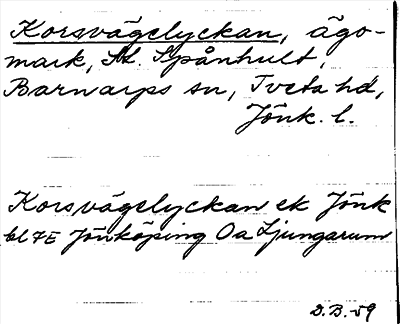 Korsvägelyckan, ägo-
mark, St. Spånhult,
Barnarps sn, Tveta hd,
Jönk. l.
Korsvägelyckan ek Jönk
bl 7E Jönköping Oa Ljungarum
D.B.-59